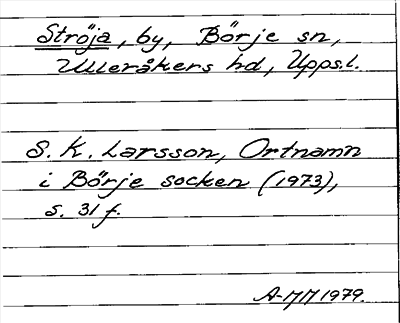 Ströja, by, Börje sn,
Ulleråkers hd, Uppsl.
S. K. Larsson, Ortnamn
i Börje socken (1973),
s. 31 f.
A-MM 1979.